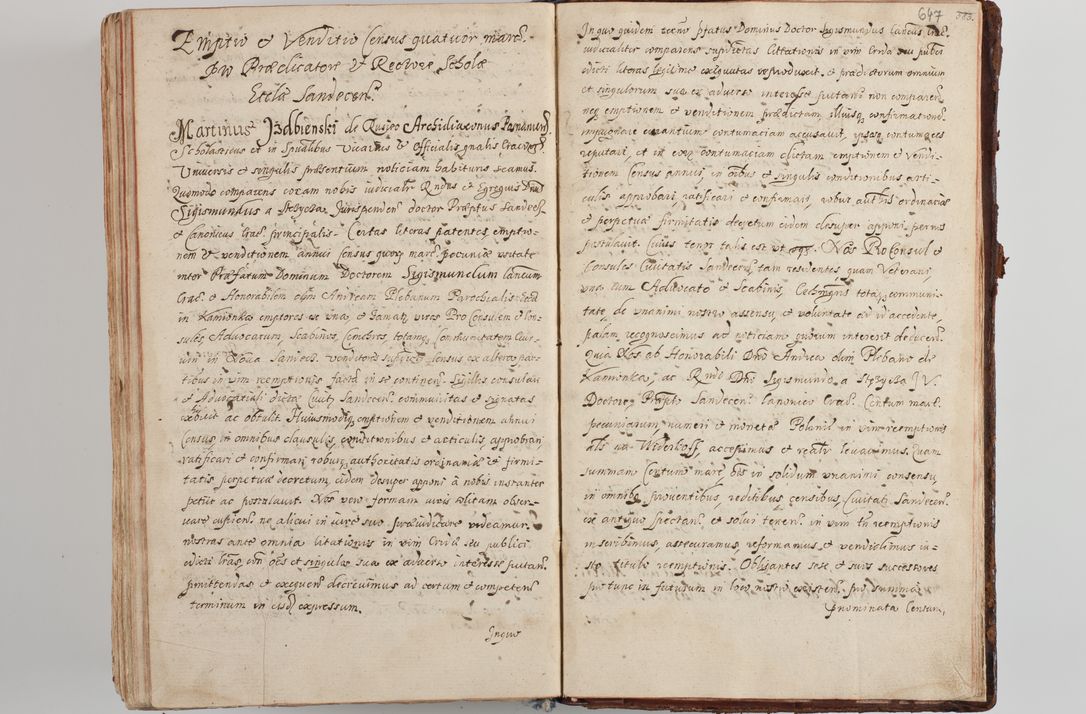 Emptio et Venditio Census quatuor marc.
pro Prædicatore et Rectore Scholæ
Eccliæ Sandecen.
Martinus Izdbienski de Rusiec Archidiaconus Posnanien.
Scholasticus et in Spualibus Vicarius et Officialis gnalis Cracovien.
Universis et singulis præsentium noticiam habituris
Quomodo comparens coram nobis iudicialr Rndus et Egregius Dnus
Sigismundus a Stezycza Jurisperiden doctor Præptus Sandecen.
et Canonicus Crac. principalis Certas literas patentes emptio-
nem et venditionem annui Census quatuor marc. pecuniæ usitatæ
inter Præfatum Dominum Doctorem Sigismundum Canonicum
Crac. et Honorabilem olim Andream Plebanum Parochialis
in Kamionka emptores ex una, et famatos viros Pro Consulem et Con-
sules, Advocatum, Scabinos, Totamque Communitatem Civi-
um in Sandecz. venditores Census ex altera par-
tibus in vim reemptionis facta in se continen. Sigillis consulari
et Advocatiali dictæ Civit. Sandecen. communitas et signatas
exhibuit ac obtulit. Huiusmodique emptionem et venditionem annui
Census in omnibus clausulis, conditionibus et articulis approbari,
ratificari et confirmari, robur authoritatis ordinariæ et firmi-
tatis perpetuæ decretum, eidem desuper apponi à nobis instanter
petiit ac postulavit. Nos vero formam iuris solitam obser-
vare cupien. ne alicui in iure suo præiudicare videamur
nostras ante omnia Citationis in vim Cridæ seu publici
edicti Lras, con oēs et singulos sua ex adverso interesse putan.
pmittendas et exequen. decrevimus ad certum et competen.
terminum in eisd. expressum.
Inquo
647 383.
In quo quidem termino pfatus Dominus Doctor Sigismundus Canonicus Crac.
iudicialiter comparens supdictas Citationes in vim Cridæ seu publici
edicti literas legitime exequutas reproduxit, et prædictorum omnium
et singulorum sua ex adverso interesse putan. non comparen.
neque emptionem et venditionem prædictam, illiusque confirmationem
impugnare curantium contumaciam accusavit, ipsosque contumaces
reputari, et in eorum contumaciam dictam emptionem et vendi-
tionem Census annui, in oibus et singulis conditionibus arti-
culis approbari ratificari et confirmari, robur authtis ordinariæ
et perpetuæ firmitatis decretum eidem desuper apponi per nos
postulavit. Cuius tenor talis est ut sequitur. Nos Pro Consul et
Consules Civitatis Sandecen. tam residentes quam Veterani,
una cum Advocato et Scabinis, totaque communi-
tate, de unanimi nostro assensu et voluntate ad id accedente,
palam recognoscimus ad noticiam quorum interest deducen.
Quia Nos ab Honorabili Dno Andrea olim Plebano de
Kamionka, ac Rndo Dno Sigismundo a Stezycza J. V.
Doctore, Præpto Sandecen. Canonico Crac. Centum marc.
pecuniarum numeri et monetæ Polonic. in vim reemptionis
als na Wiederkoff, accepimus et realr levavimus. Quam
summam Centum marc. in solidum unanimi consensu
in omnibus proventibus, reditibus, censibus, Civitati Sandecen.
ex antiquo spectan. et solvi teneri in vim reemptionis
inscribimus, assecuramus, reformamus, et vendidimus iu-
sto titulo reemptionis. Obligantes sese et suis successores
pro tunc in futurum in loco nostro existen. pro summa
pnominata Centum,